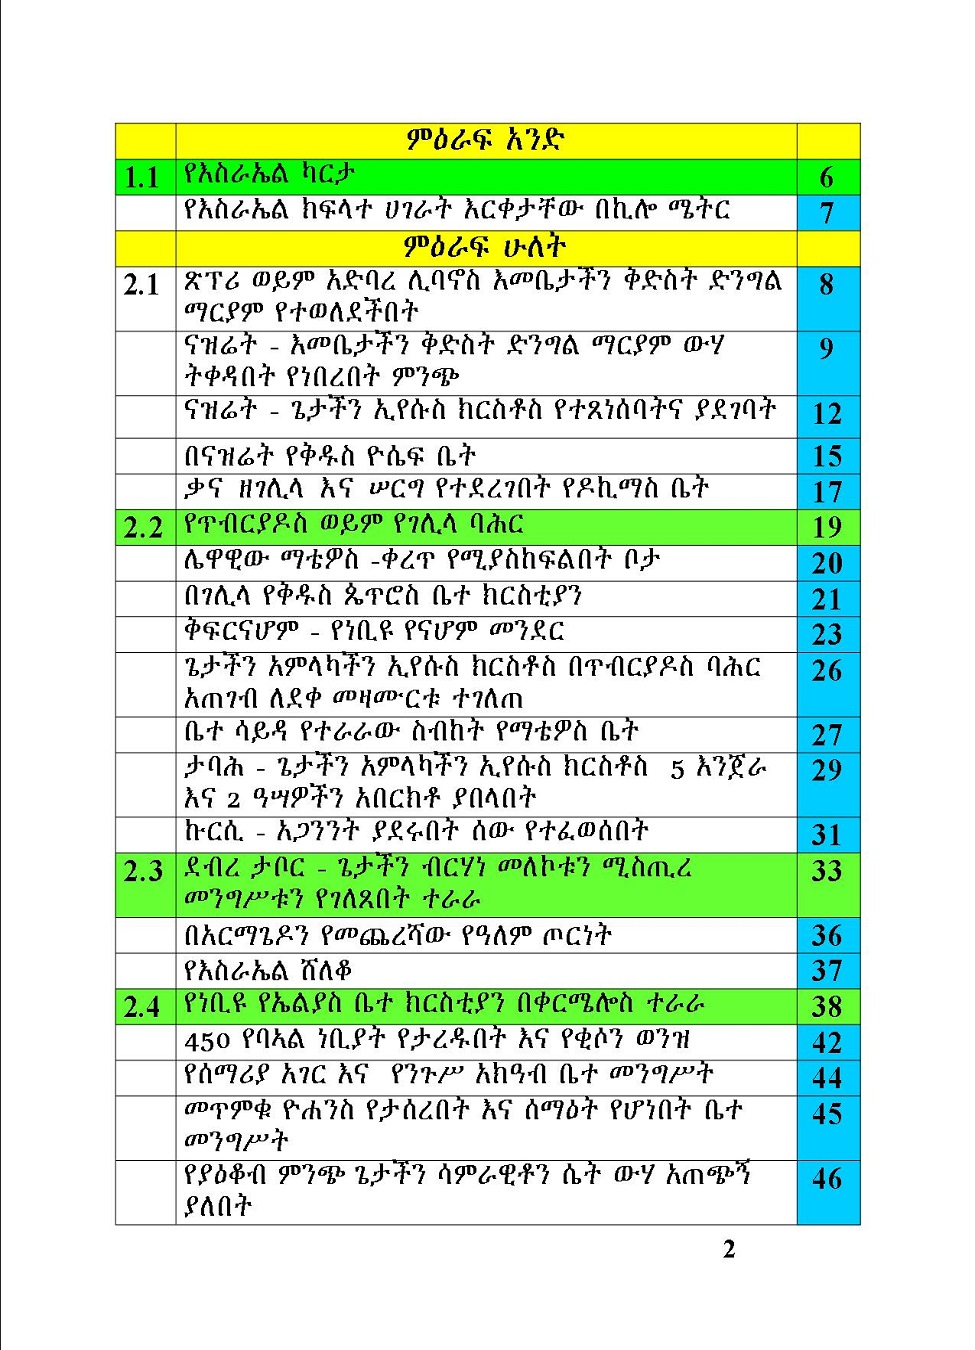 ምዕራፍ አንድ
1.1 የእስራኤል ካርታ 6
የእስራኤል ክፍላተ ሀገራት እርቀታቸው በኪሎ ሜትር 7
ምዕራፍ ሁለት
2.1 ጽፕሪ ወይም አድባረ ሊባኖስ እመቤታችን ቅድስት ድንግል 8
ማርያም የተወለደችበት
ናዝሬት - እመቤታችን ቅድስት ድንግል ማርያም ውሃ 9
ትቀዳበት የነበረበት ምንጭ
ናዝሬት - ጌታችን ኢየሱስ ክርስቶስ የተጸነሰባትና ያደገባት 12
በናዝሬት የቅዱስ ዮሴፍ ቤት 15
ቃና ዘገሊላ እና ሠርግ የተደረገበት የዶኪማስ ቤት 17
2.2 የጥብርያዶስ ወይም የገሊላ ባሕር 19
ሌዋዊው ማቴዎስ -ቀረጥ የሚያስከፍልበት ቦታ 20
በገሊላ የቅዱስ ጴጥሮስ ቤተ ክርስቲያን 21
ቅፍርናሆም - የነቢዩ የናሆም መንደር 23
ጌታችን አምላካችን ኢየሱስ ክርስቶስ በጥብርያዶስ ባሕር 26
አጠገብ ለደቀ መዛሙርቱ ተገለጠ
ቤተ ሳይዳ የተራራው ስብከት የማቴዎስ ቤት 27
ታባሕ - ጌታችን አምላካችን ኢየሱስ ክርስቶስ 5 እንጀራ 29
እና 2 ዓሣዎችን አበርክቶ ያበላበት
ኩርሲ - አጋንንት ያደሩበት ሰው የተፈወሰበት 31
2.3 ደብረ ታቦር - ጌታችን ብርሃነ መለኮቱን ሚስጢረ 33
መንግሥቱን የገለጸበት ተራራ
በአርማጌዶን የመጨረሻው የዓለም ጦርነት 36
የእስራኤል ሸለቆ 37
2.4 የነቢዩ የኤልያስ ቤተ ክርስቲያን በቀርሜሎስ ተራራ 38
450 የባኣል ነቢያት የታረዱበት እና የቂሶን ወንዝ 42
የሰማሪያ አገር እና የንጉሥ አክዓብ ቤተ መንግሥት 44
መጥምቁ ዮሐንስ የታሰረበት እና ሰማዕት የሆነበት ቤተ 45
መንግሥት
የያዕቆብ ምንጭ ጌታችን ሳምራዊቶን ሴት ውሃ አጠጭኝ 46
ያለበት
2